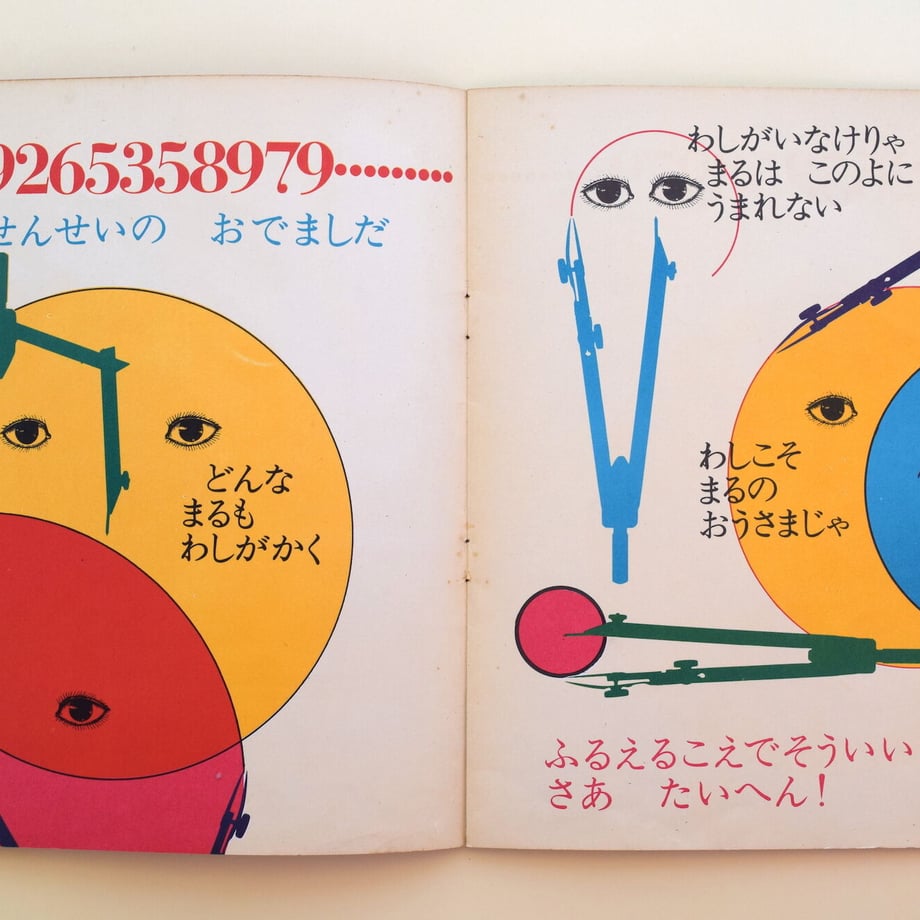 9265358979‥‥‥‥
せんせいの　おでましだ
どんな
まるも
わしがかく
わしがいなけりゃ
まるは　このよに
うまれない
わしこそ
まるの
おうさまじゃ
ふるえるこえでそういい
さあ　たいへん！